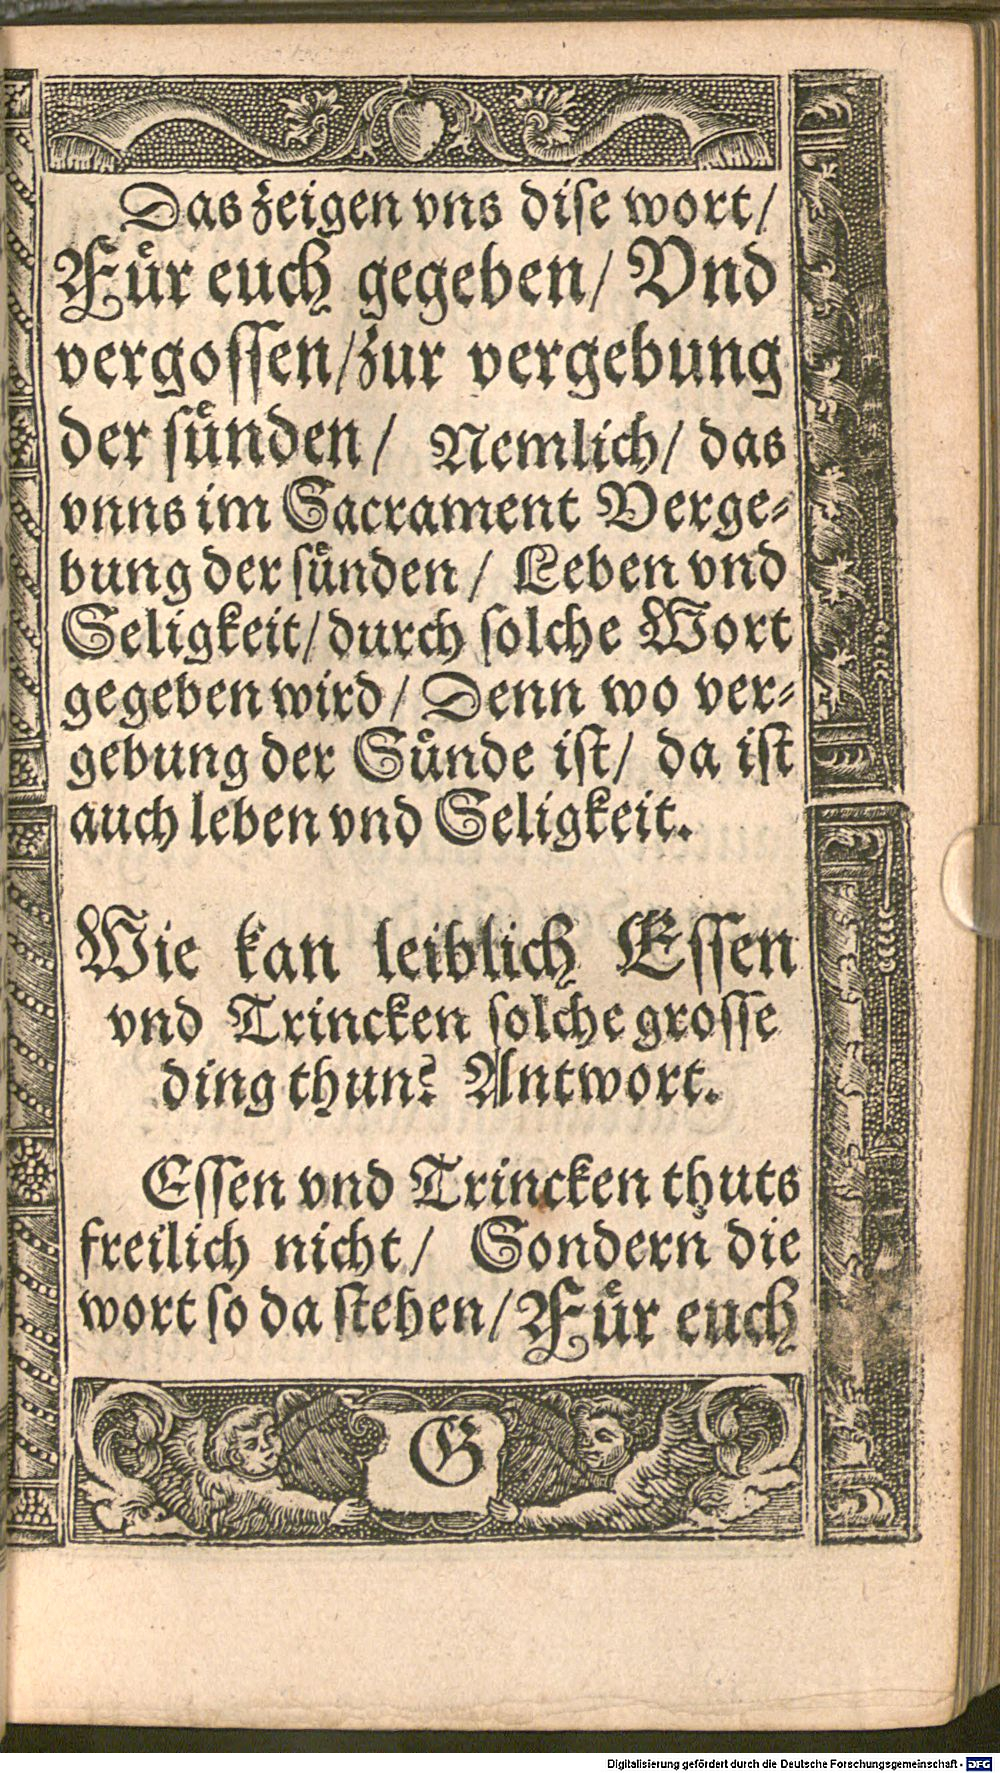 Das zeigen vns dise wort/
Fuͤr euch gegeben/ Vnd
vergossen/zur vergebung
der suͤnden/ Nemlich/ das
vnns im Sacrament Verge-
bung der suͤnden/ Leben vnd
Seligkeit/durch solche Wort
gegeben wird/ Denn wo ver-
gebung der Suͤnde ist/ da ist
auch leben vnd Seligkeit.
Wie kan leiblich Essen
vnd Trincken solche grosse
ding thun? Antwort.
Essen vnd Trincken thuts
freilich nicht/ Sondern die
wort so da stehen/Fuͤr euch
G
Digitalisierung gefördert durch die Deutsche Forschungsgemeinschaft - DFG